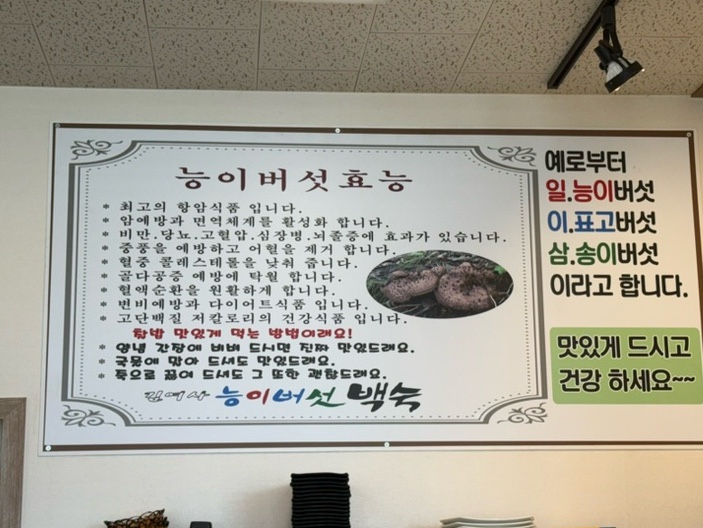 능이버섯효능
* 최고의 항암식품 입니다.
* 암예방과 면역체계를 활성화 합니다.
* 비만.당뇨.고혈압.심장병.뇌졸증에 효과가 있습니다.
* 중풍을 예방하고 어혈을 제거 합니다.
* 혈중 콜레스테롤을 낮춰 줍니다.
* 골다공증 예방에 탁월 합니다.
* 혈액순환을 원활하게 합니다.
* 변비예방과 다이어트식품 입니다.
* 고단백질 저칼로리의 건강식품 입니다.
찰밥 맛있게 먹는 방법이래요!
* 양념 간장에 비벼 드시면 진짜 맛있드래요.
* 국물에 말아 드셔도 맛있드래요.
* 죽으로 끓여 드셔도 그 또한 괜찮드래요.
김여사 능이버섯 백숙
예로부터
일.능이버섯
이.표고버섯
삼.송이버섯
이라고 합니다.
맛있게 드시고
건강 하세요~~